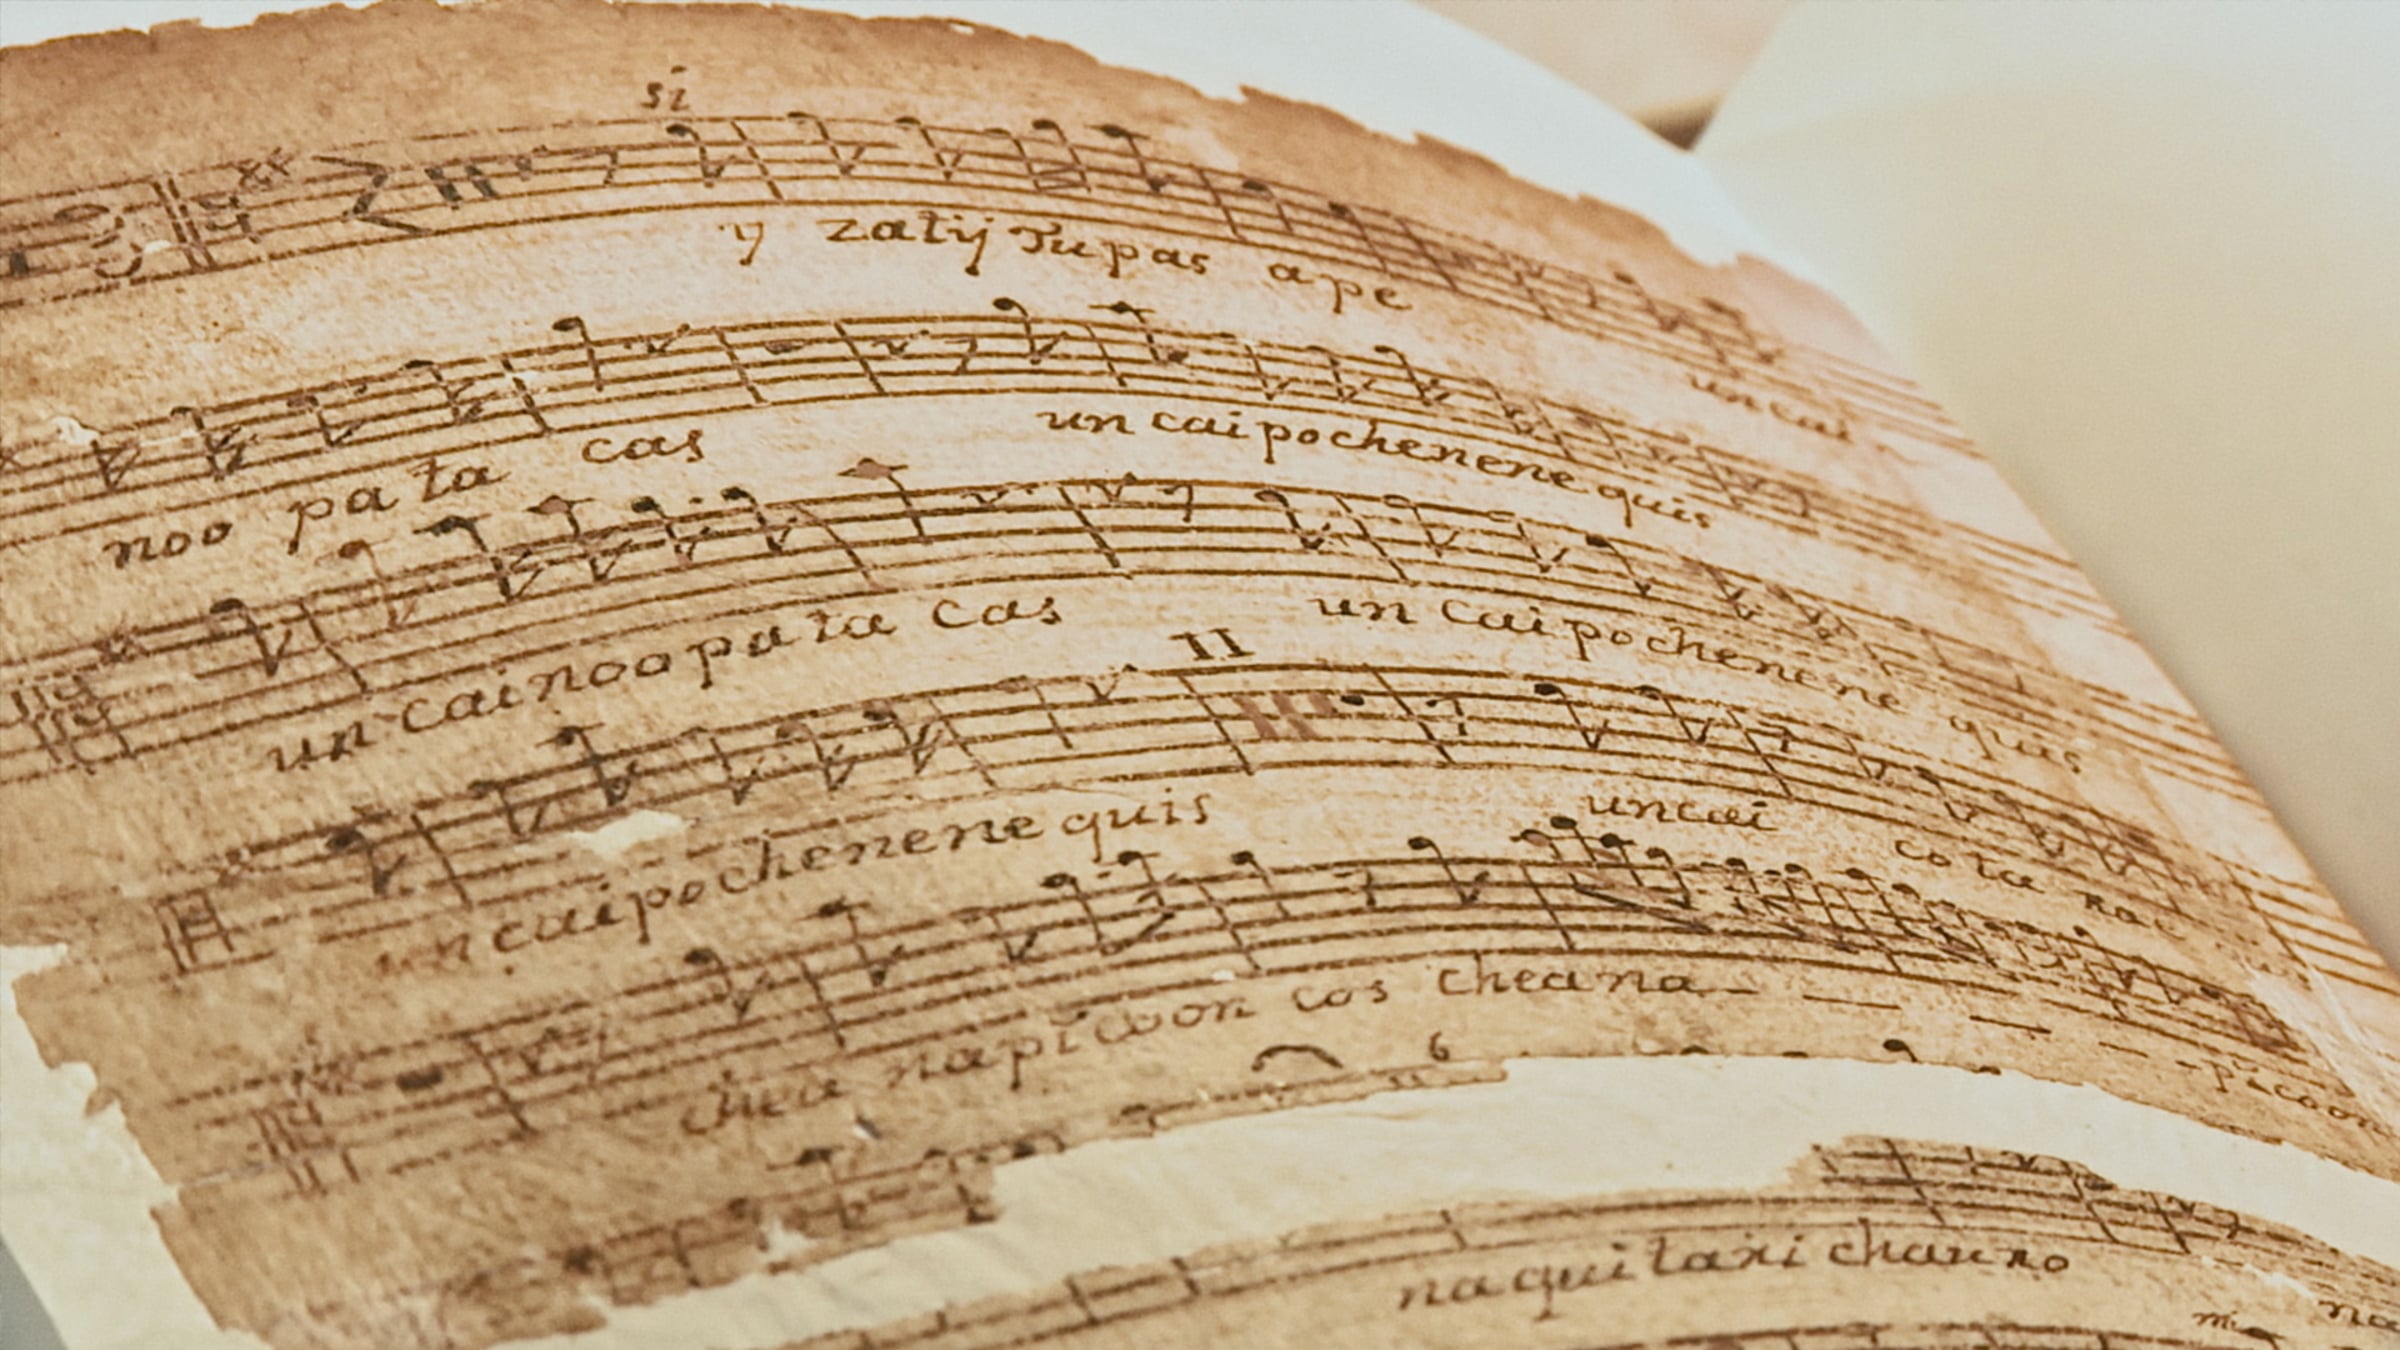 si
y zatij Tupas ape
uncai
noo pa ta cas un caipochenene quis
un cainoopata cas un caipochenene quis
II
un caipochenene quis uncai co ta na
chea napicoon cos cheana - - - - - picoon
6
naqui taxi chauno na